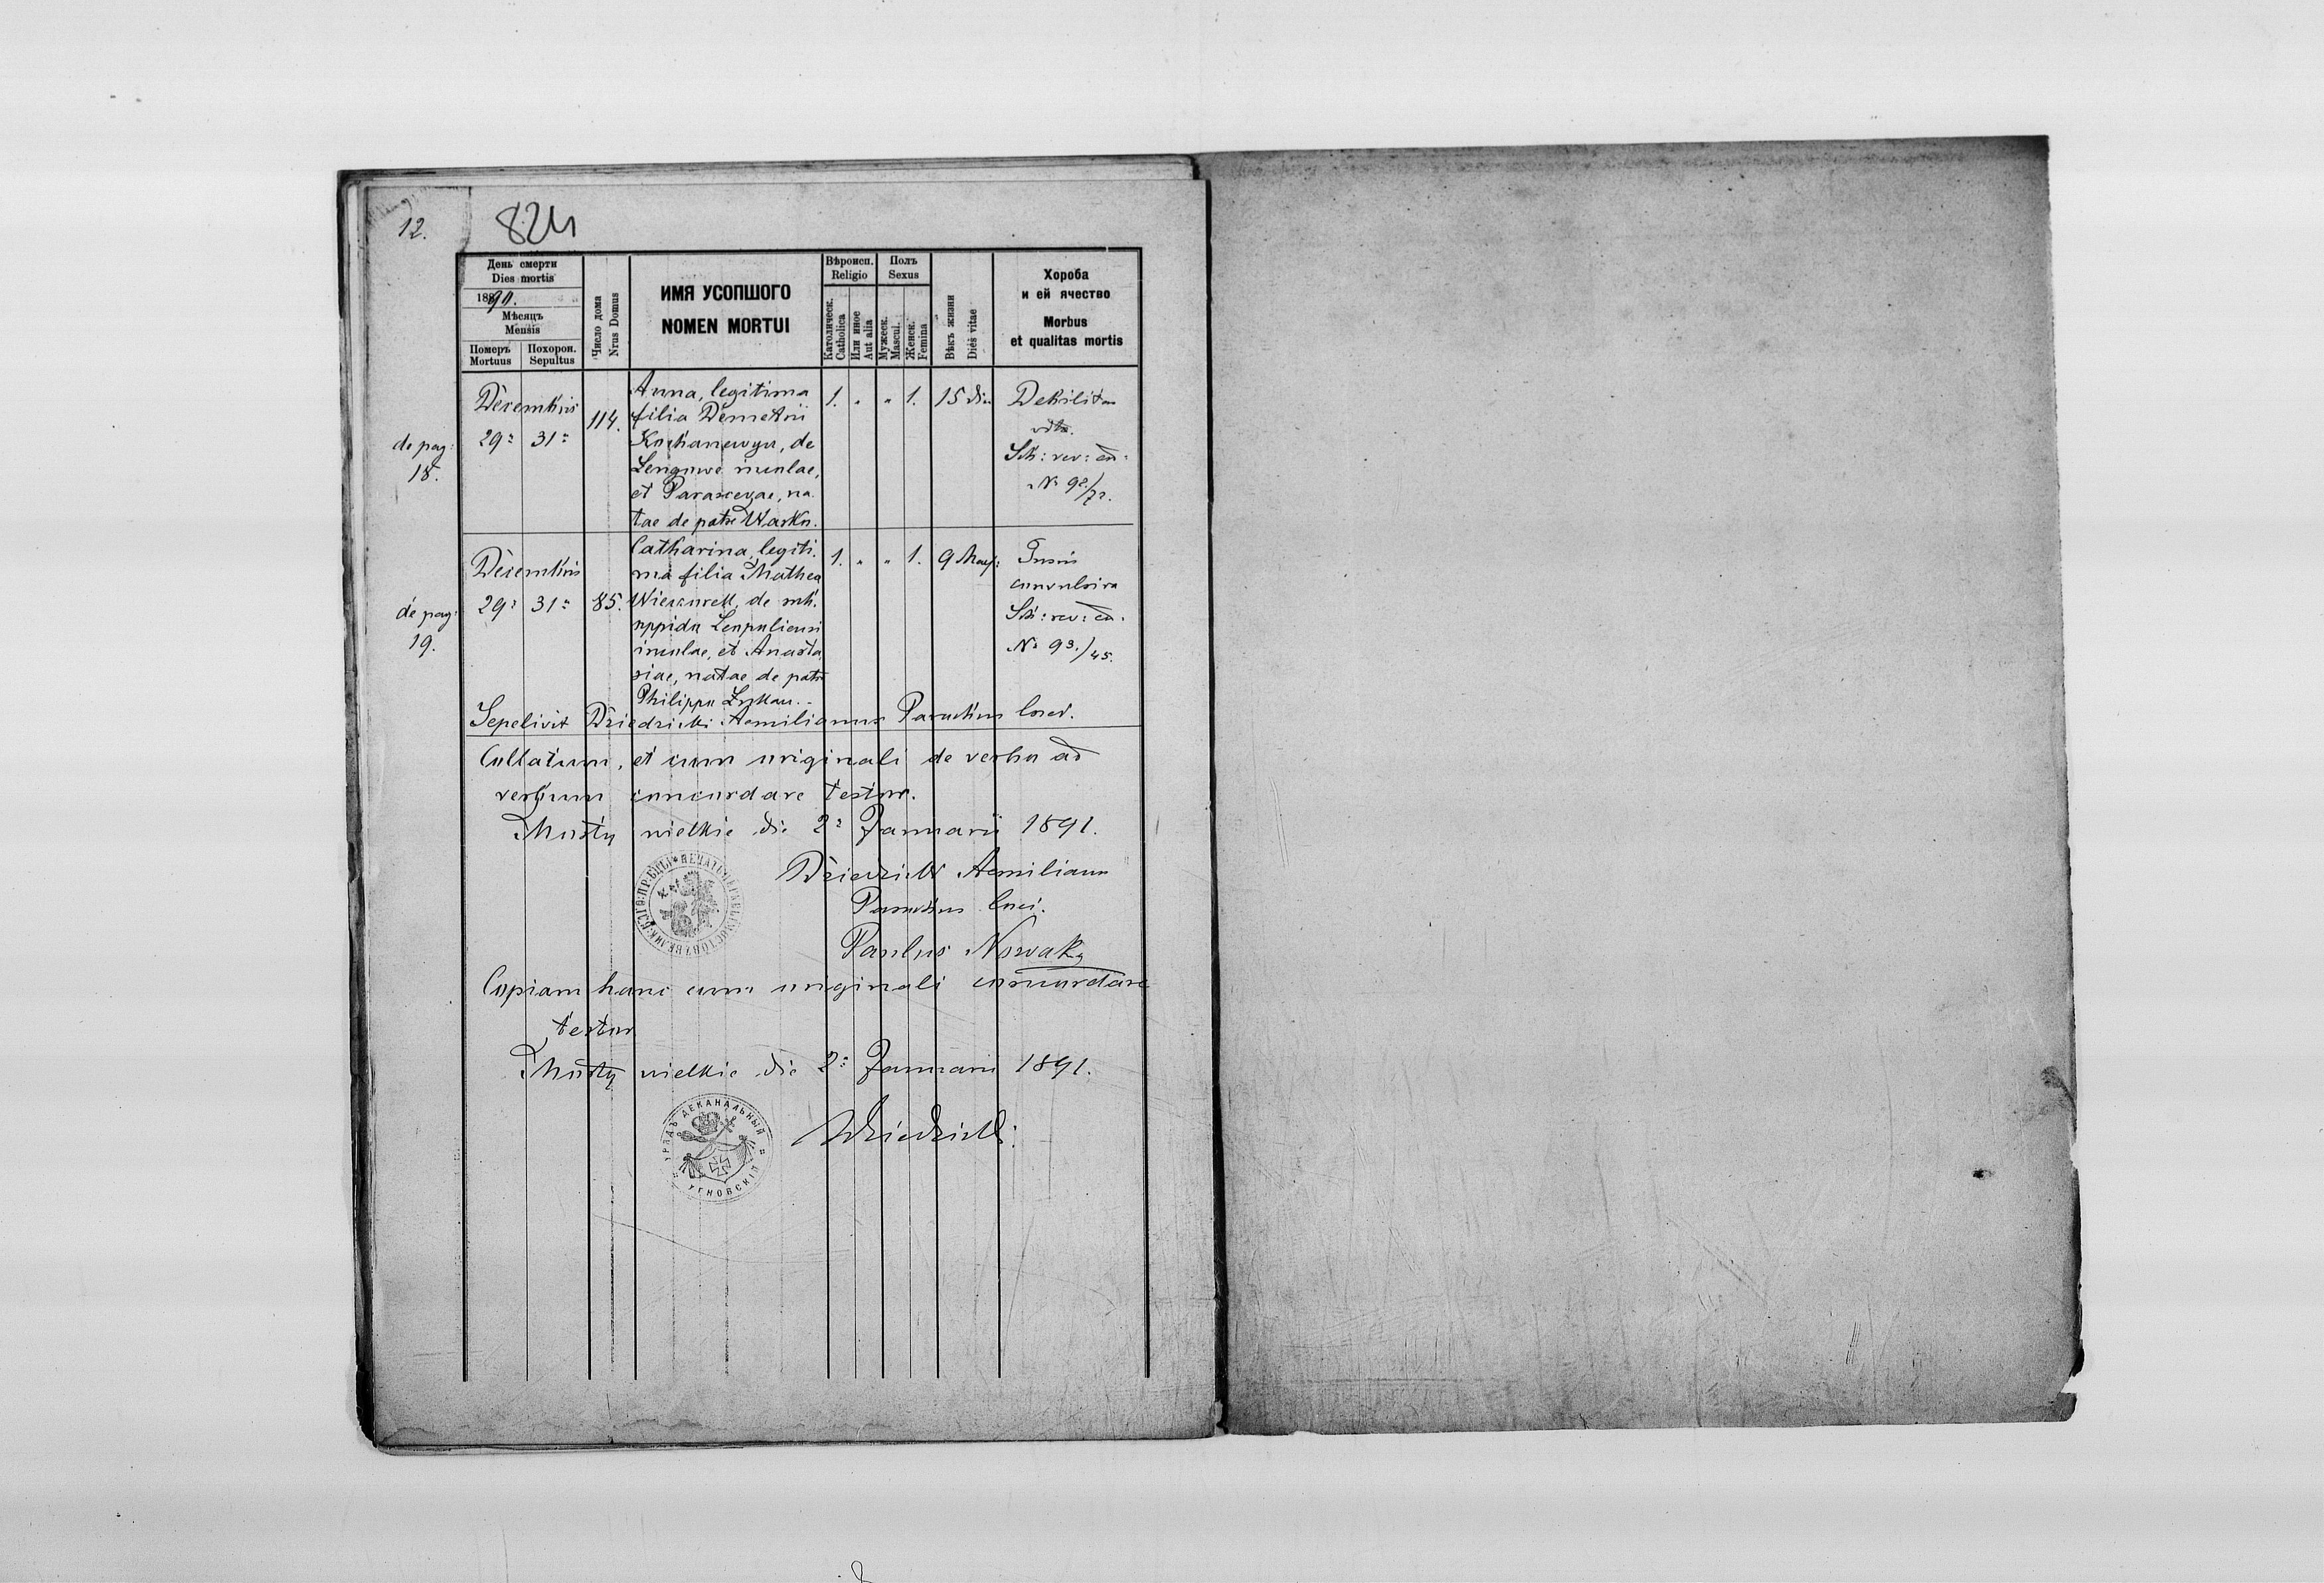 12.
824
День смерти
Dies mortis
1890.
Мѣсяцъ
Mensis
Померъ
Mortuus
Похорон.
Sepultus
Число дома
Nrus Domus
ИМЯ УСОПШОГО
NOMEN MORTUI
Вѣроисп.
Religio
Католическ.
Catholica
Или иное
Aut alia
Полъ
Sexus
Мужеск.
Mascul.
Женск.
Femina
Вѣкъ жизни
Dies vitae
Хороба
и ей ячество
Morbus
et qualitas mortis
de pag:
18.
Decembris
29a 31a
114.
Anna, legitima
filia Demetrii
de
incolae,
et Parascevae, na-
tae de patre Warko.
1. " " 1. 15 die
Debilitas
vitae.
Sch: rev: cad:
No 92./72.
de pag:
19.
Decembris
29a 31a
85.
Catharina, legiti-
ma filia Mathea
de sub.
oppido Leopoliensi
incolae, et Anasta-
siae, natae de patre
Philippo
1. " " 1. 9
Tussis
convulsiva
Sch: rev: cad:
No 93./45.
Sepelivit Dziedzicki Aemilianus Parochus loci.
Collatum, et cum originali de verbo ad
verbum concordare testor.
Mosty wielkie die 2a Januarii 1891.
Dziedzicki Aemilianus
Parochus loci.
Paulus Nowak
Copiam hanc cum originali concordare
testor
Mosty wielkie die 2a Januarii 1891.
УРЯДЪ ДЕКАНАЛЬНЫЙ
УГНОВСКІЙ
Dziedzicki